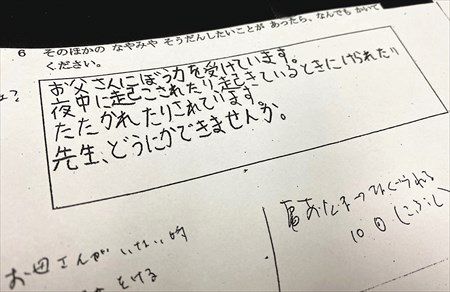 6 そのほかの なやみや そうだんしたいことが あったら、なんでも かいて
ください。
お父さんにぼう力を受けています。
夜中に起こされたり起きているときにけられたり
たたかれたりされています。
先生、どうにかできませんか。
お母さんがいない時
10回